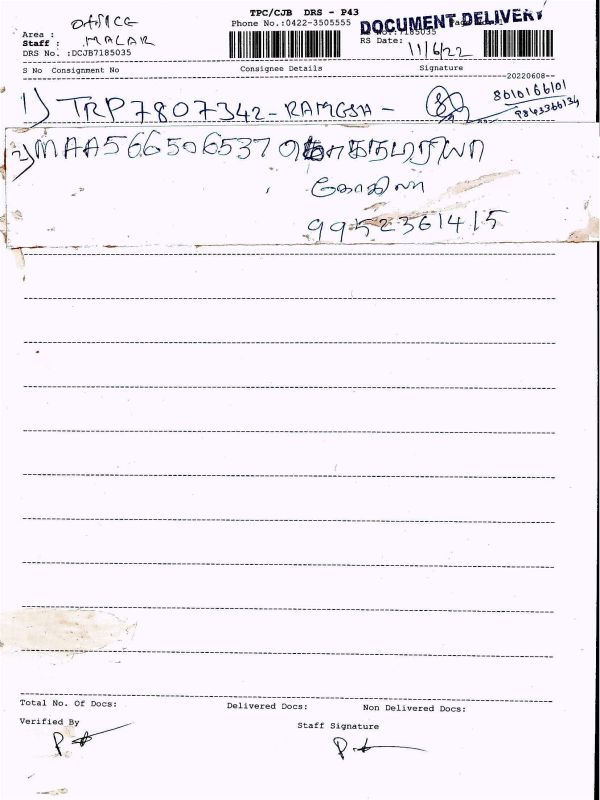 TPC/CJB DRS - P43
Area : OFFICE
Phone No.:0422-3505555
DOCUMENT DELIVERY
Staff : MALAR
DRS No. :DCJB7185035
RS Date: 11/6/22
S No Consignment No Consignee Details Signature
20220608
1) TRP7807342 - RAMGSH -
8610166101
9843366134
2) MAA566506537
கோகிலா
9952361415
Total No. Of Docs: Delivered Docs: Non Delivered Docs:
Verified By Staff Signature